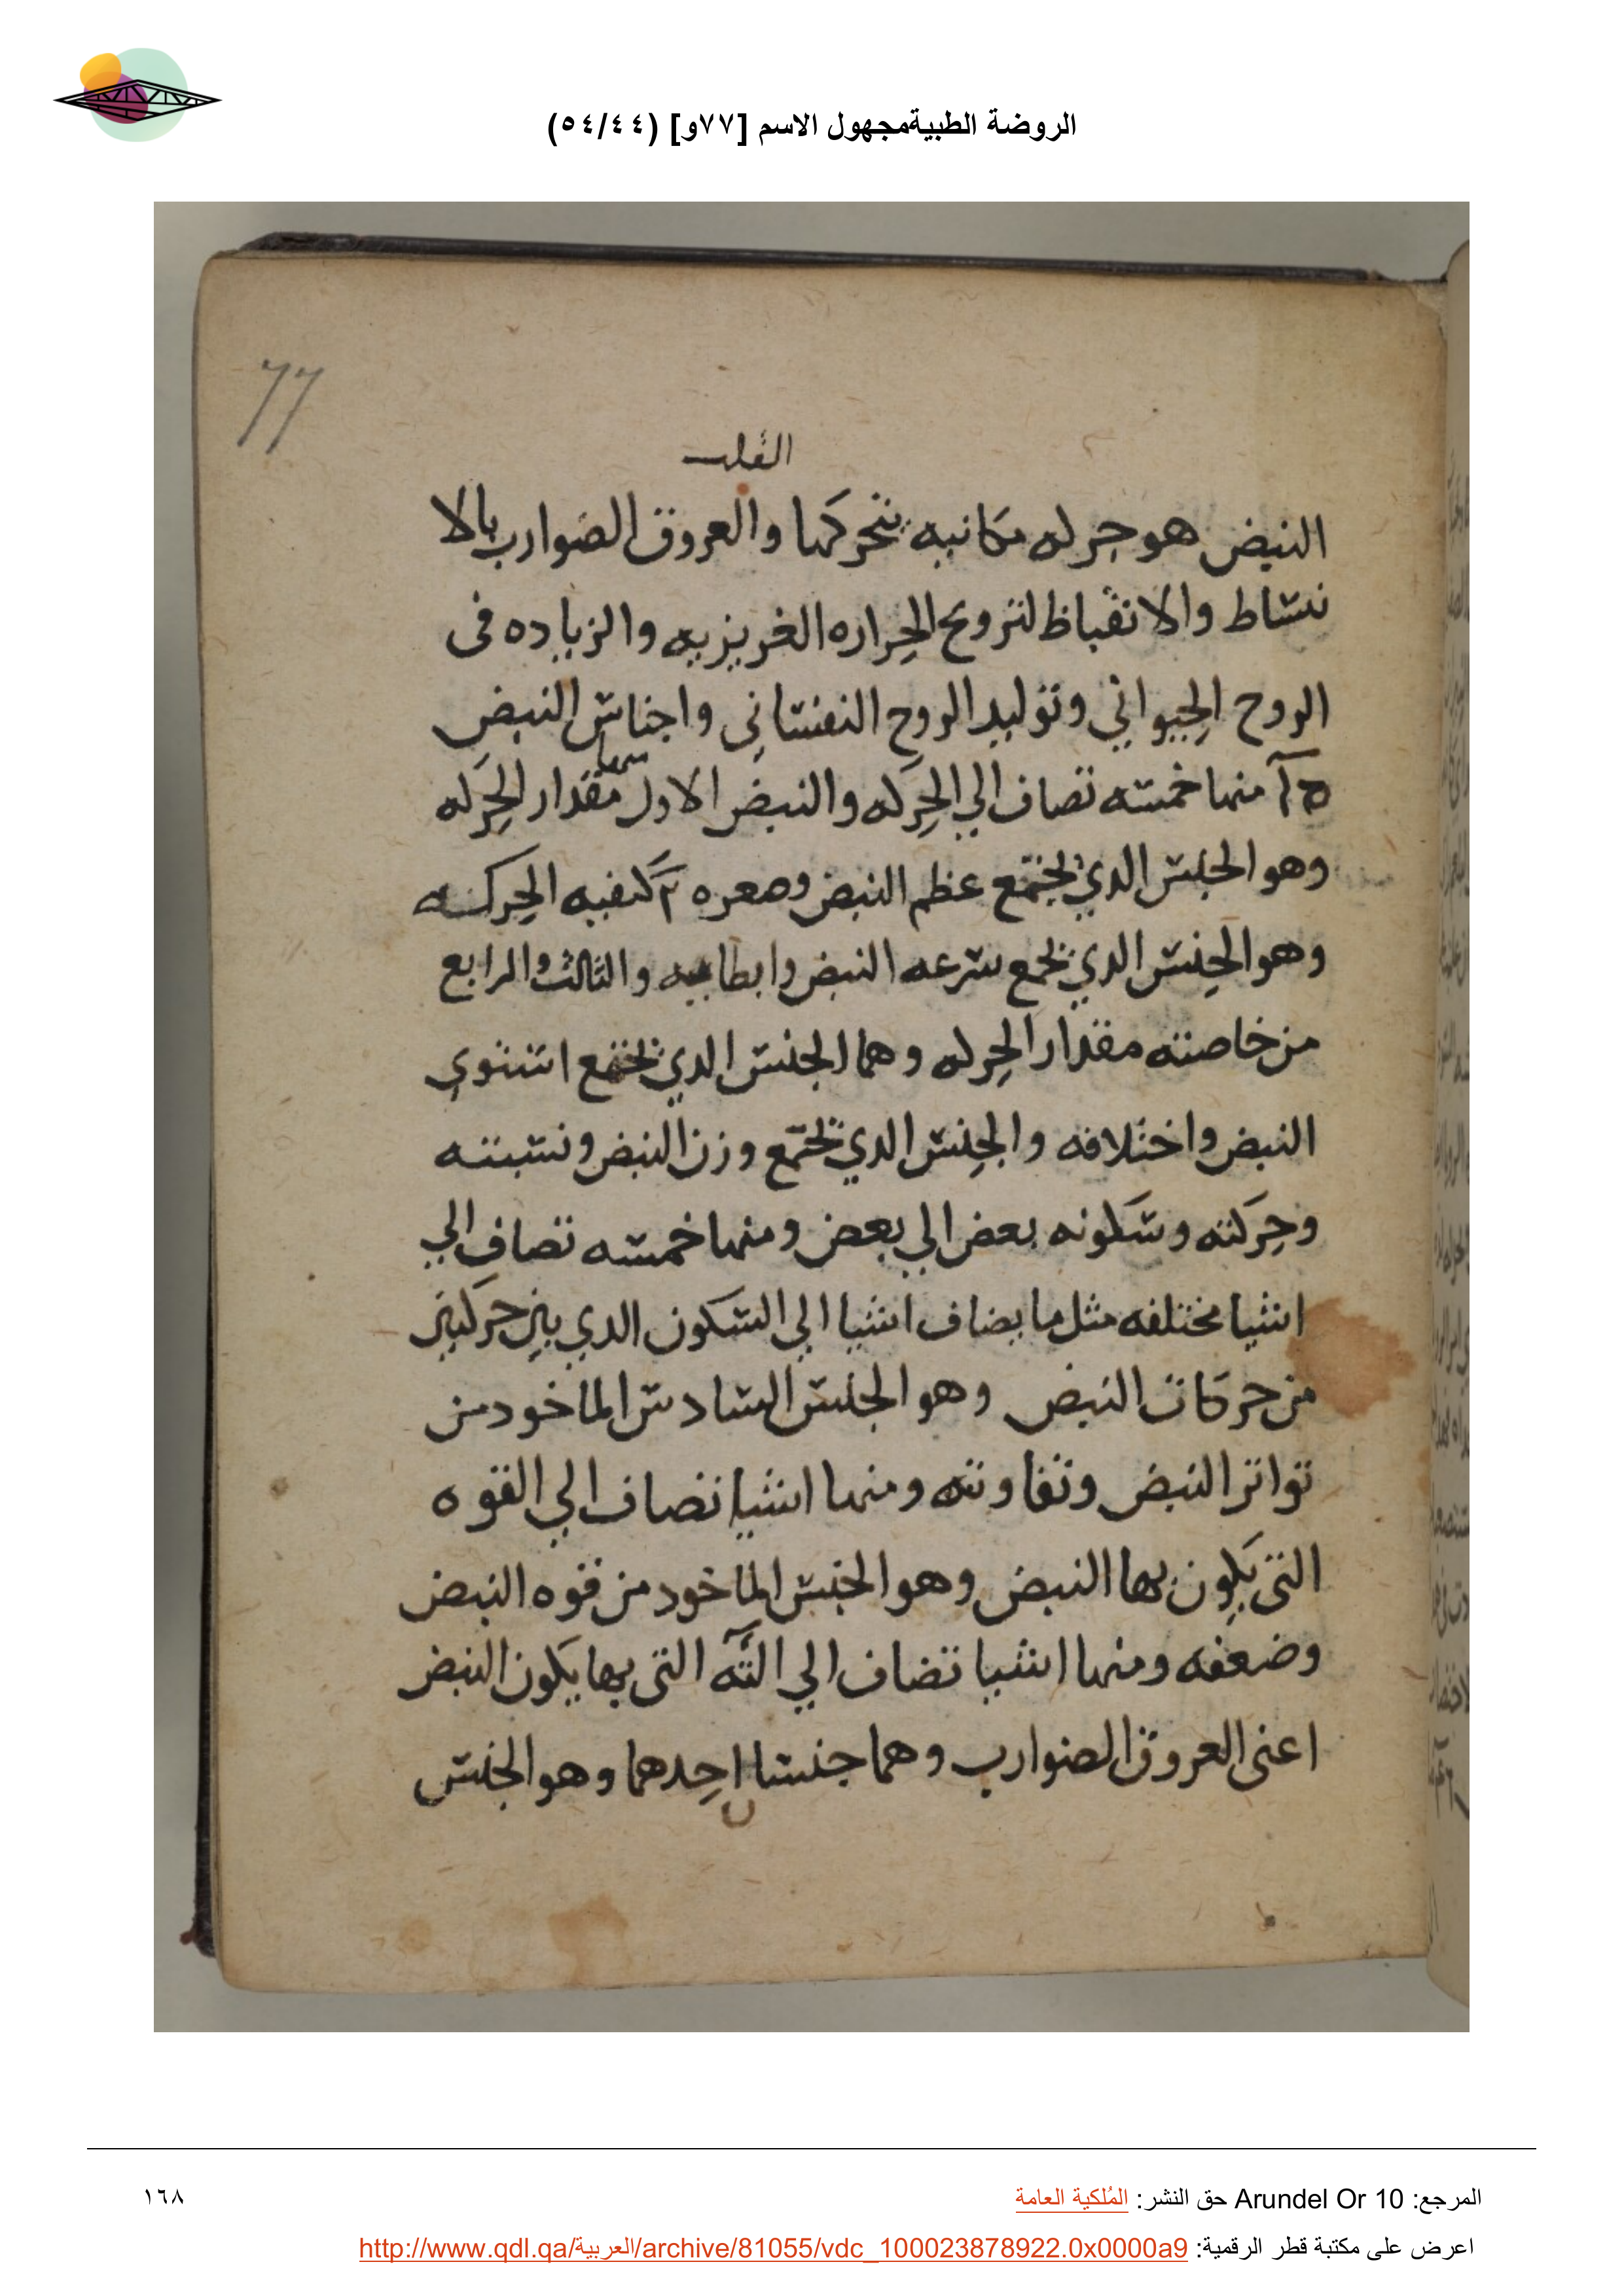 الروضة الطبيةمجهول الاسم [٧٧و] (٥٤/٤٤)
77
القلب
النبض هو حركه مكانيه يتحركها والعروق الضوارب بالا
نبساط والانقباظ لتزويح الحراره الغريزيه والزياده فى
الروح الحيواني وتوليد الروح النفساني واجناس النبض
منها خمسه تضاف الي الحركه والنبض الاول مقدار الحركه
وهو الجنس الدي يجتمع عظم النبض وصغره ٢ كيفيه الحركه
وهو الجنس الدي يجمع سرعه النبض وابطاييه والثالث والرابع
من خاصته مقدار الحركه وهما الجنس الدي يجتمع استوي
النبض واختلافه والجنس الدي يجتمع وزن النبض ونسبته
وحركته وسكونه بعض الي بعض ومنها خمسه تضاف الي
اشيا مختلفه مثل ما يضاف اشيا الي السكون الدي بين حركتين
من حركات النبض وهو الجنس السادس الماخود من
تواتر النبض وتفاوته ومنها اشيا تضاف الي القوه
التى يكون بها النبض وهو الجنس الماخود من قوه النبض
وضعفه ومنها اشيا تضاف الي التى بها يكون النبض
اعنى العروق الضوارب وهما جنسان احدهما وهو الجنس
المرجع: Arundel Or 10 حق النشر: المُلكية العامة
١٦٨
اعرض على مكتبة قطر الرقمية: http://www.qdl.qa/العربية/archive/81055/vdc_100023878922.0x0000a9